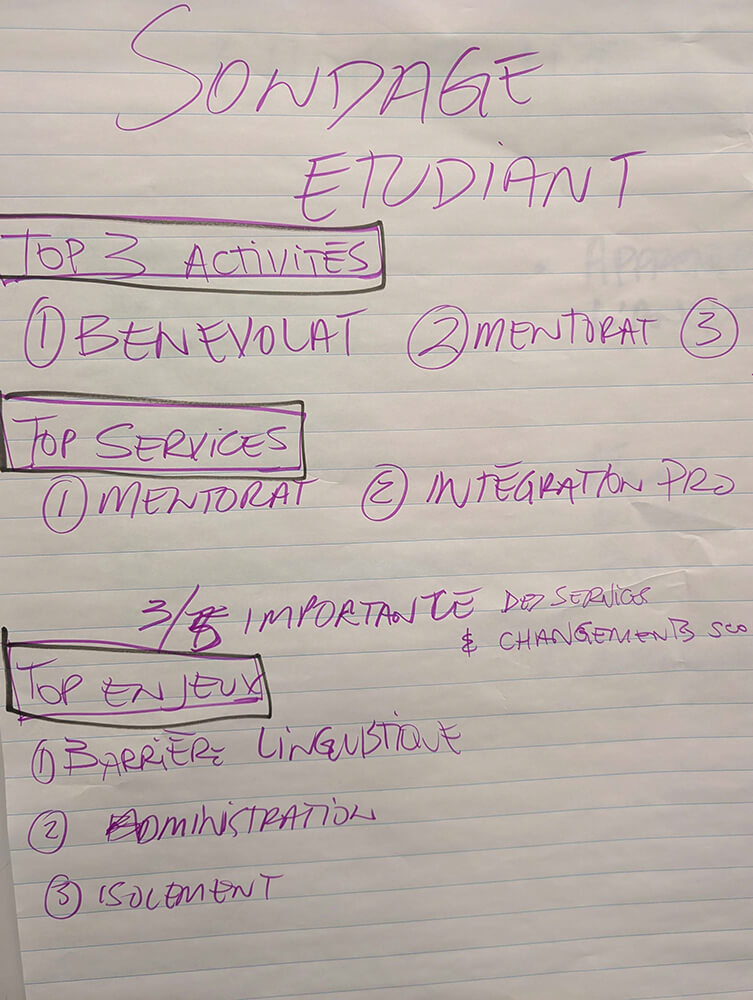 SONDAGE
ETUDIANT
TOP 3 ACTIVITÉS
① BENEVOLAT ② MENTORAT ③
TOP SERVICES
① MENTORAT ② INTÉGRATION PRO
3/5 IMPORTANCE DES SERVICES
& CHANGEMENTS SCO
TOP ENJEUX
① BARRIÈRE LINGUISTIQUE
② ADMINISTRATION
③ ISOLEMENT